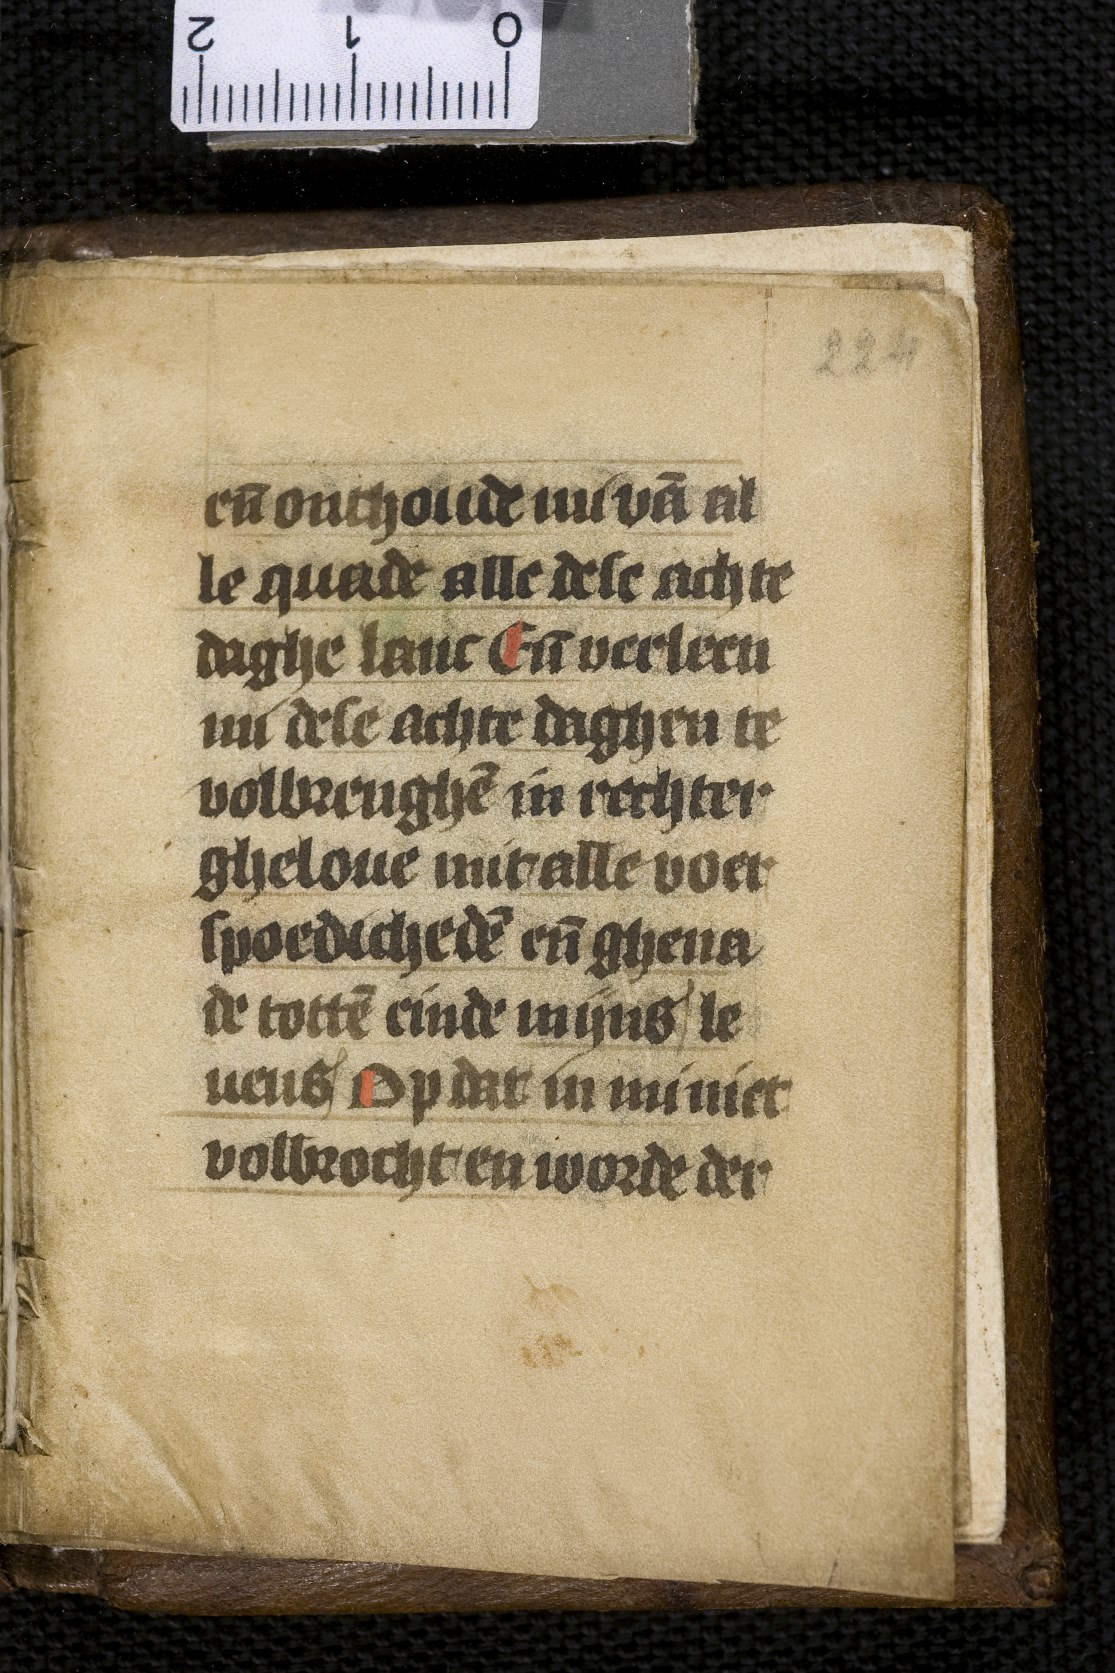 224
en̄ onthoude mi vā al
le quade alle dese achte
daghe lanc En̄ verleen
mi dese achte daghen te
volbrenghē in rechter
gheloue mit alle voer
spoedichedē en̄ ghena
de tottē einde mijns le
uens Op dat in mi niet
volbrocht en worde der